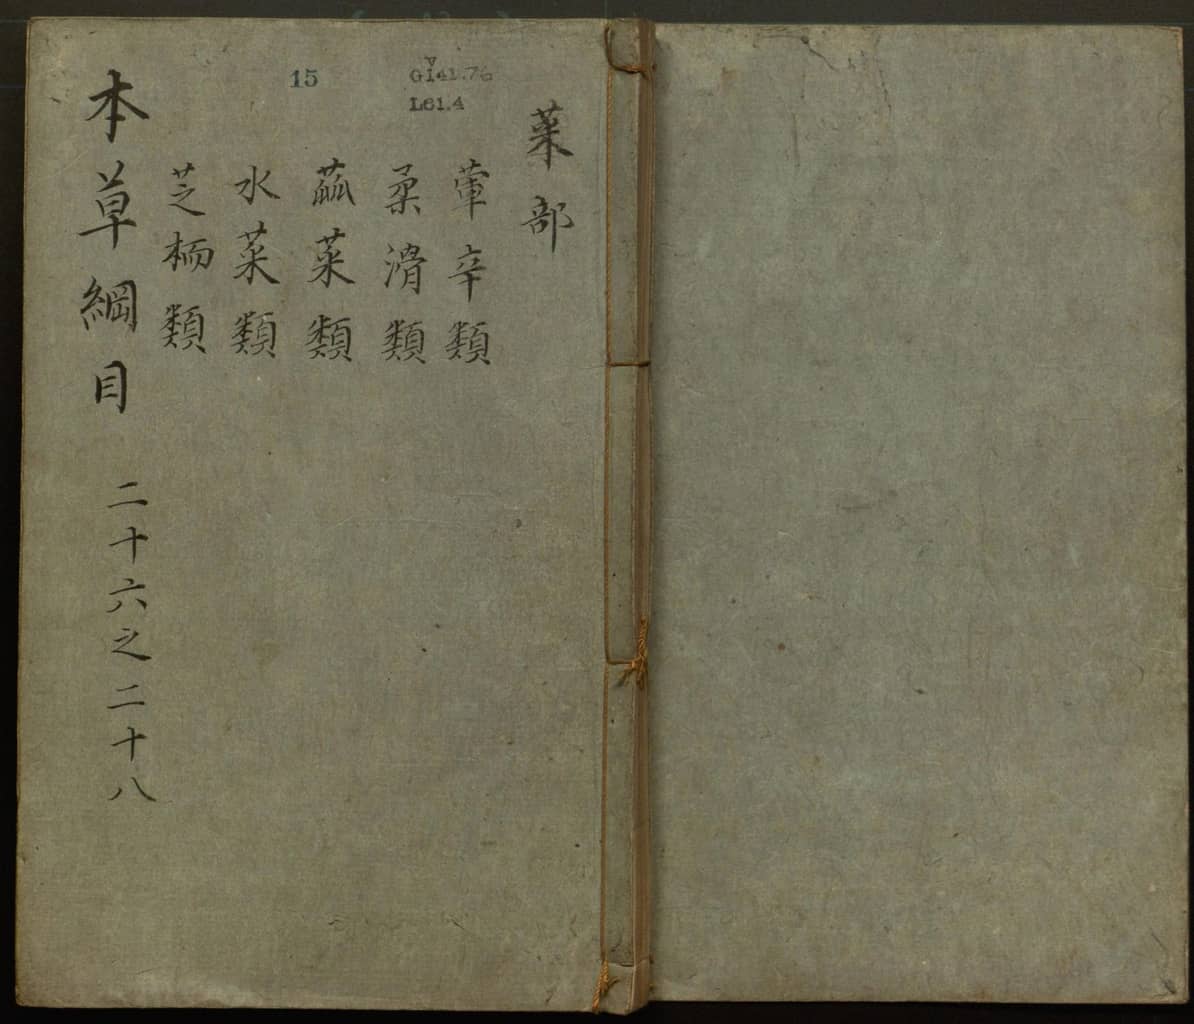 菜部
葷辛類
柔滑類
蓏菜類
水菜類
芝栭類
本草綱目 二十六之二十八
15
V
G141.76
L61.4